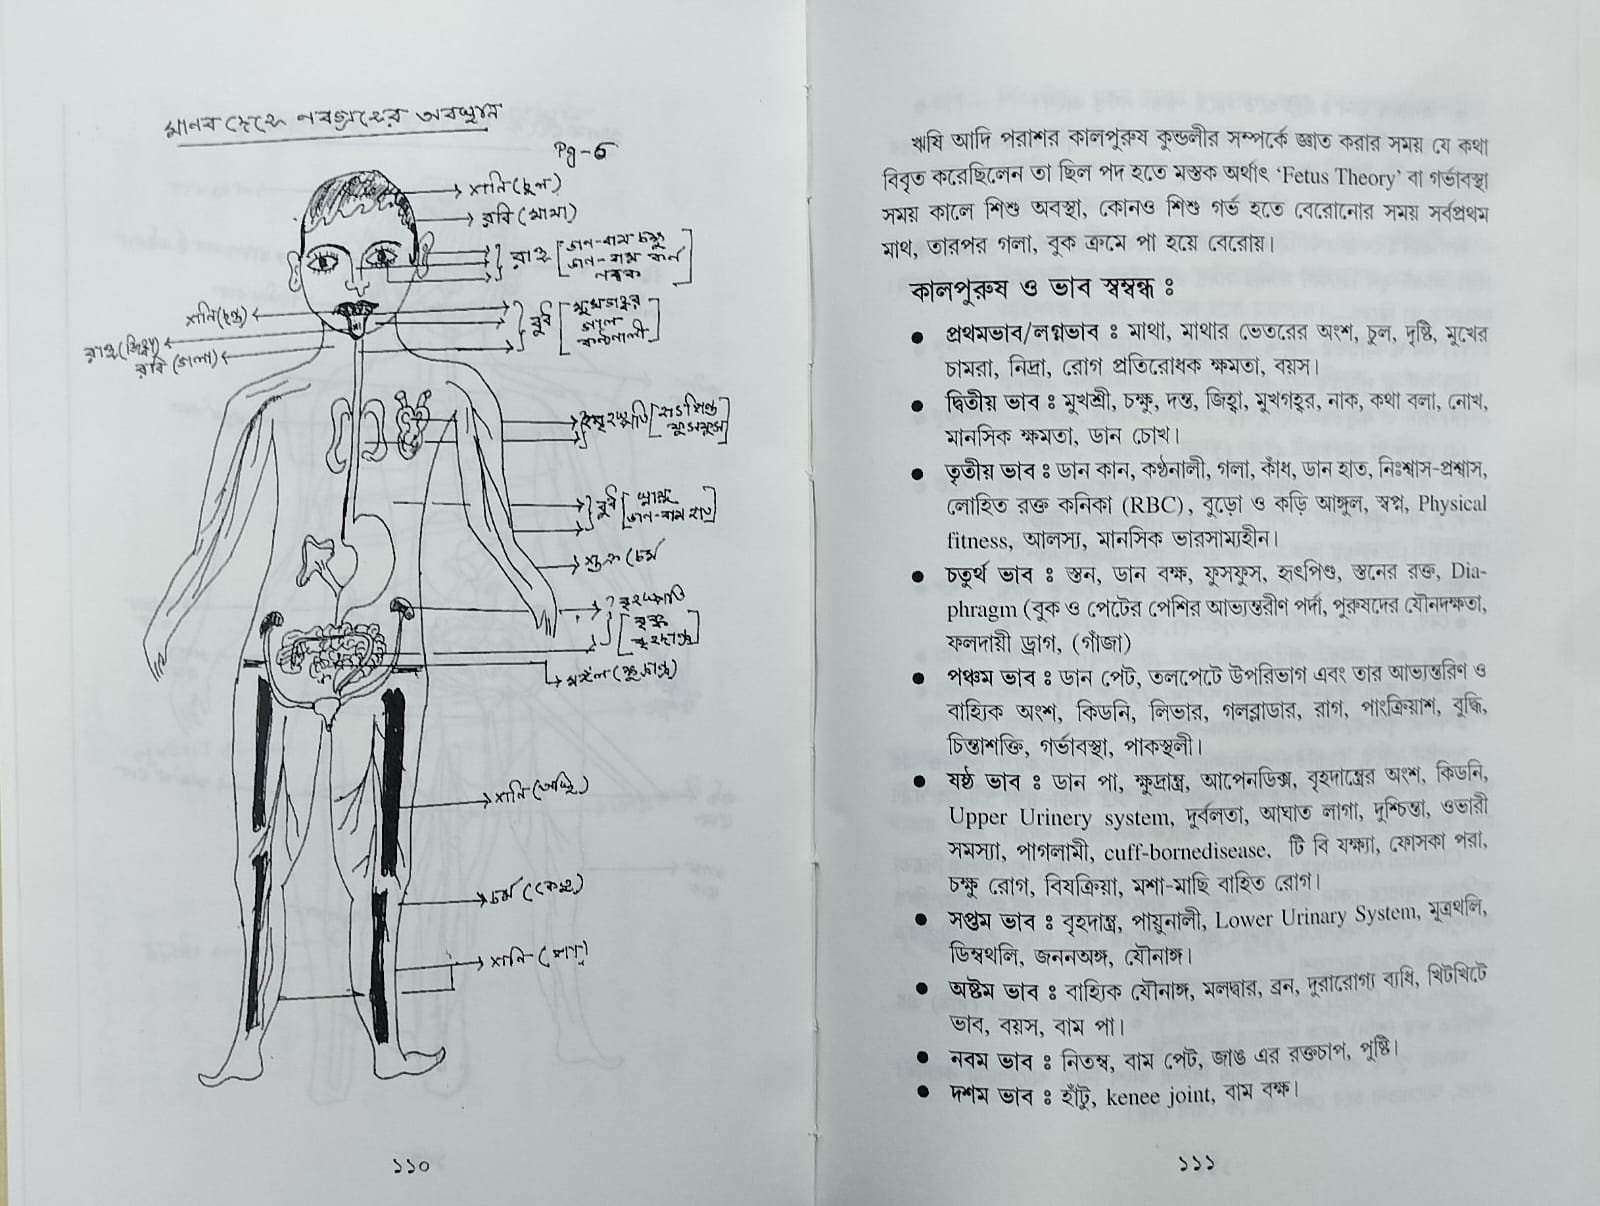 মানব দেহে নবগ্রহের অবস্থান
Pg-6
শনি (চুল)
রবি (মাথা)
রাহু [ডান-বাম চক্ষু
ডান-বাম কর্ন
নবক]
শনি (দন্ত)
বুধ [মুখগহ্বর
গাল
কন্ঠনালী]
রাহু (জিহ্বা)
রবি (গলা)
বৃহস্পতি [হৃৎপিণ্ড
ফুসফুস]
বুধ [স্নায়ু
ডান-বাম হাত]
শুক্র (চর্ম
বৃহস্পতি
[বৃক্ক
বৃহদান্ত্র]
মঙ্গল (ক্ষুদ্রান্ত্র)
শনি (অস্থি)
চর্ম (কেতু)
শনি
১১০
ঋষি আদি পরাশর কালপুরুষ কুন্ডলীর সম্পর্কে জ্ঞাত করার সময় যে কথা
বিবৃত করেছিলেন তা ছিল পদ হতে মস্তক অর্থাৎ ‘Fetus Theory’ বা গর্ভাবস্থা
সময় কালে শিশু অবস্থা, কোনও শিশু গর্ভ হতে বেরোনোর সময় সর্বপ্রথম
মাথ, তারপর গলা, বুক ক্রমে পা হয়ে বেরোয়।
কালপুরুষ ও ভাব স্বম্বন্ধ ঃ
● প্রথমভাব/লগ্নভাব ঃ মাথা, মাথার ভেতরের অংশ, চুল, দৃষ্টি, মুখের
চামরা, নিদ্রা, রোগ প্রতিরোধক ক্ষমতা, বয়স।
● দ্বিতীয় ভাব ঃ মুখশ্রী, চক্ষু, দন্ত, জিহ্বা, মুখগহ্বর, নাক, কথা বলা, নোখ,
মানসিক ক্ষমতা, ডান চোখ।
● তৃতীয় ভাব ঃ ডান কান, কণ্ঠনালী, গলা, কাঁধ, ডান হাত, নিঃশ্বাস-প্রশ্বাস,
লোহিত রক্ত কনিকা (RBC), বুড়ো ও কড়ি আঙ্গুল, স্বপ্ন, Physical
fitness, আলস্য, মানসিক ভারসাম্যহীন।
● চতুর্থ ভাব ঃ স্তন, ডান বক্ষ, ফুসফুস, হৃৎপিণ্ড, স্তনের রক্ত, Dia-
phragm (বুক ও পেটের পেশির আভ্যন্তরীণ পর্দা, পুরুষদের যৌনদক্ষতা,
ফলদায়ী ড্রাগ, (গাঁজা)
● পঞ্চম ভাব ঃ ডান পেট, তলপেটে উপরিভাগ এবং তার আভ্যন্তরিণ ও
বাহ্যিক অংশ, কিডনি, লিভার, গলব্লাডার, রাগ, পাংক্রিয়াশ, বুদ্ধি,
চিন্তাশক্তি, গর্ভাবস্থা, পাকস্থলী।
● ষষ্ঠ ভাব ঃ ডান পা, ক্ষুদ্রান্ত্র, আপেনডিক্স, বৃহদান্ত্রের অংশ, কিডনি,
Upper Urinery system, দুর্বলতা, আঘাত লাগা, দুশ্চিন্তা, ওভারী
সমস্যা, পাগলামী, cuff-bornedisease, টি বি যক্ষ্যা, ফোসকা পরা,
চক্ষু রোগ, বিষক্রিয়া, মশা-মাছি বাহিত রোগ।
● সপ্তম ভাব ঃ বৃহদান্ত্র, পায়ুনালী, Lower Urinary System, মূত্রথলি,
ডিম্বথলি, জননঅঙ্গ, যৌনাঙ্গ।
● অষ্টম ভাব ঃ বাহ্যিক যৌনাঙ্গ, মলদ্বার, ব্রন, দুরারোগ্য ব্যধি, খিটখিটে
ভাব, বয়স, বাম পা।
● নবম ভাব ঃ নিতম্ব, বাম পেট, জাঙ এর রক্তচাপ, পুষ্টি।
● দশম ভাব ঃ হাঁটু, kenee joint, বাম বক্ষ।
১১১